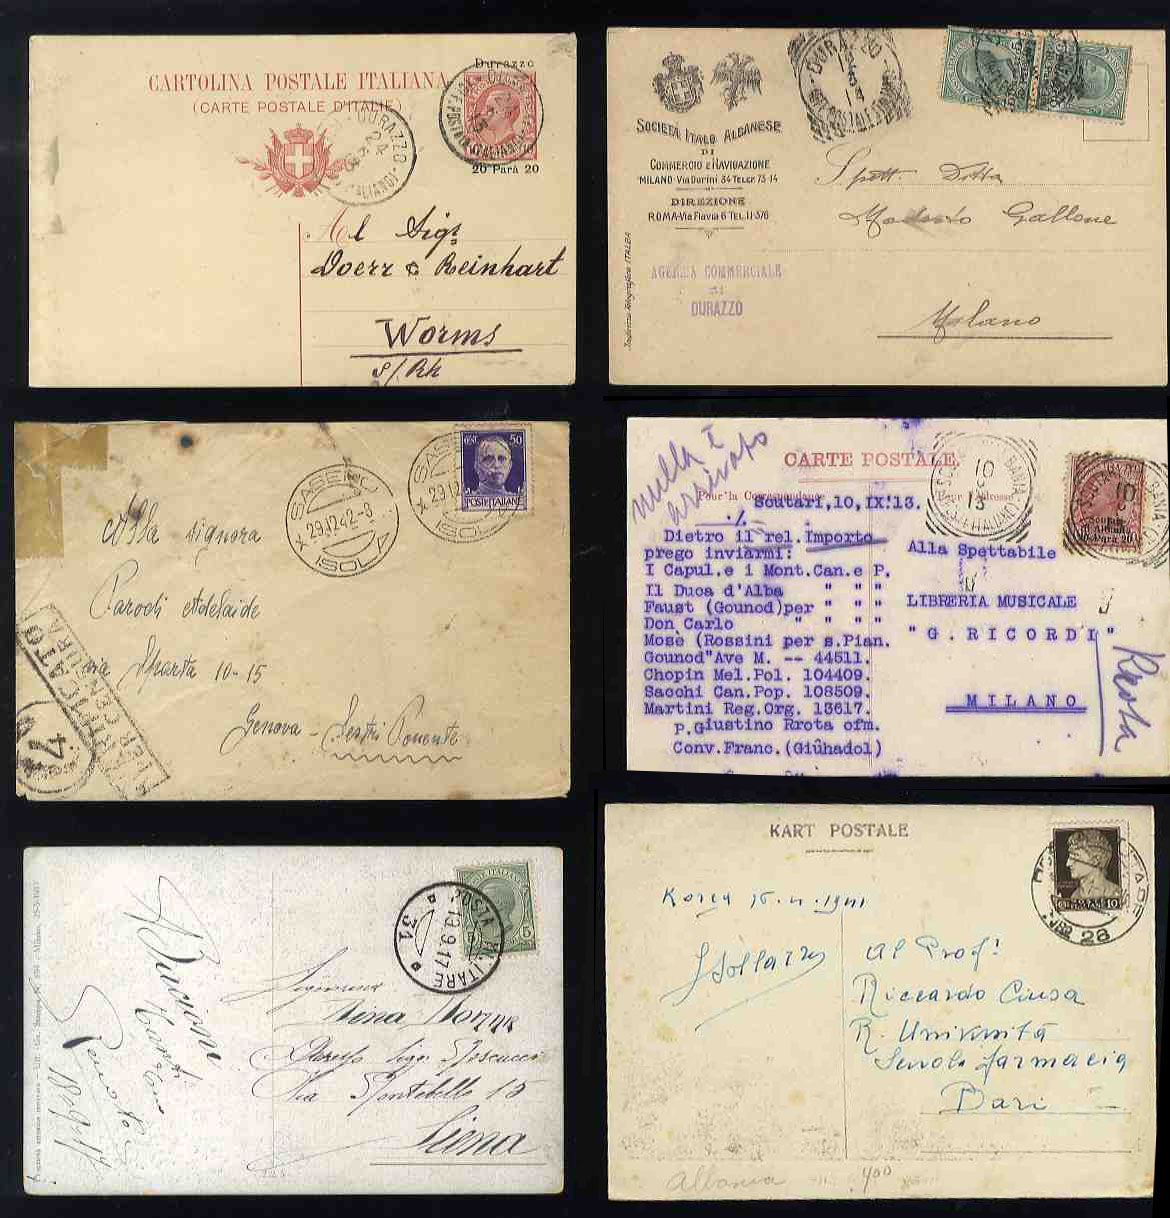 Durazzo
CARTOLINA POSTALE ITALIANA
(CARTE POSTALE D'ITALIE)
DURAZZO
20 Parà 20
Al Sigr
Doerr & Reinhart
Worms
s/Rh
DURAZZO
SOCIETÀ ITALO ALBANESE
DI
COMMERCIO E NAVIGAZIONE
MILANO-Via Durini 34 TELEF. 73-14
DIREZIONE
ROMA-Via Flavia 6 TEL. 11-376
AGENZIA COMMERCIALE
di
DURAZZO
Spett. Ditta
Modesto Gallone
Milano
50
POSTE ITALIANE
SASENO
29.12.42-8
Alla signora
Parodi Adelaide
via Sparta 10-15
Genova - Sestri Ponente
VERIFICATO
PER CENSURA
47
nulla è
arrivato
CARTE POSTALE.
Pour la Correspondance
Pour l'Adresse
Scutari,10,IX.13.
./.
Dietro il rel. Importo
prego inviarmi:
I Capul.e i Mont.Can.e P.
Il Duca d'Alba " " "
Faust (Gounod)per " " "
Don Carlo " " " "
Mosè (Rossini per s.Pian.
Gounod"Ave M. -- 44511.
Chopin Mel.Pol. 104409.
Sacchi Can.Pop. 108509.
Martini Reg.Org. 13617.
P.Giustino Rrota ofm.
Conv.Franc.(Giûhadol)
Alla Spettabile
LIBRERIA MUSICALE
"G. RICORDI"
MILANO
10
13
20 Parà 20
POSTA MILITARE
19.9.17
31
5
Signorina
Via Montebello 15
Siena
KART POSTALE
10
28
Korca 15.11.1941
Al Prof:
Riccardo Ciusa
R. Università
Scuola farmacia
Bari
Albania
400